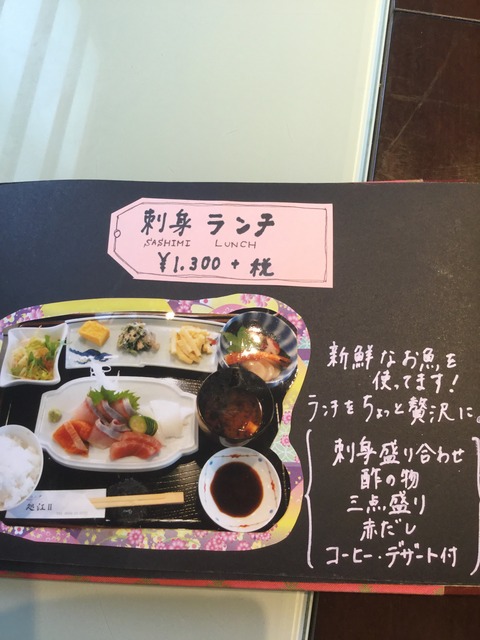 刺身 ランチ
SASHIMI LUNCH
¥1.300 + 税
新鮮なお魚を
使ってます!
ランチをちょっと贅沢に。
刺身盛り合わせ
酢の物
三点盛り
赤だし
コーヒー・デザート付